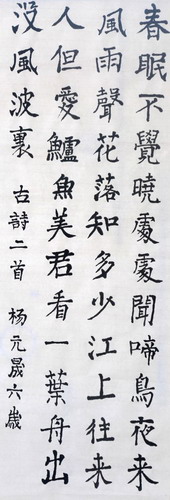 春眠不覺曉處處聞啼鳥夜来
風雨聲花落知多少江上往来
人但愛鱸魚美君看一葉舟出
没風波裏 古詩二首 杨元晟六歲